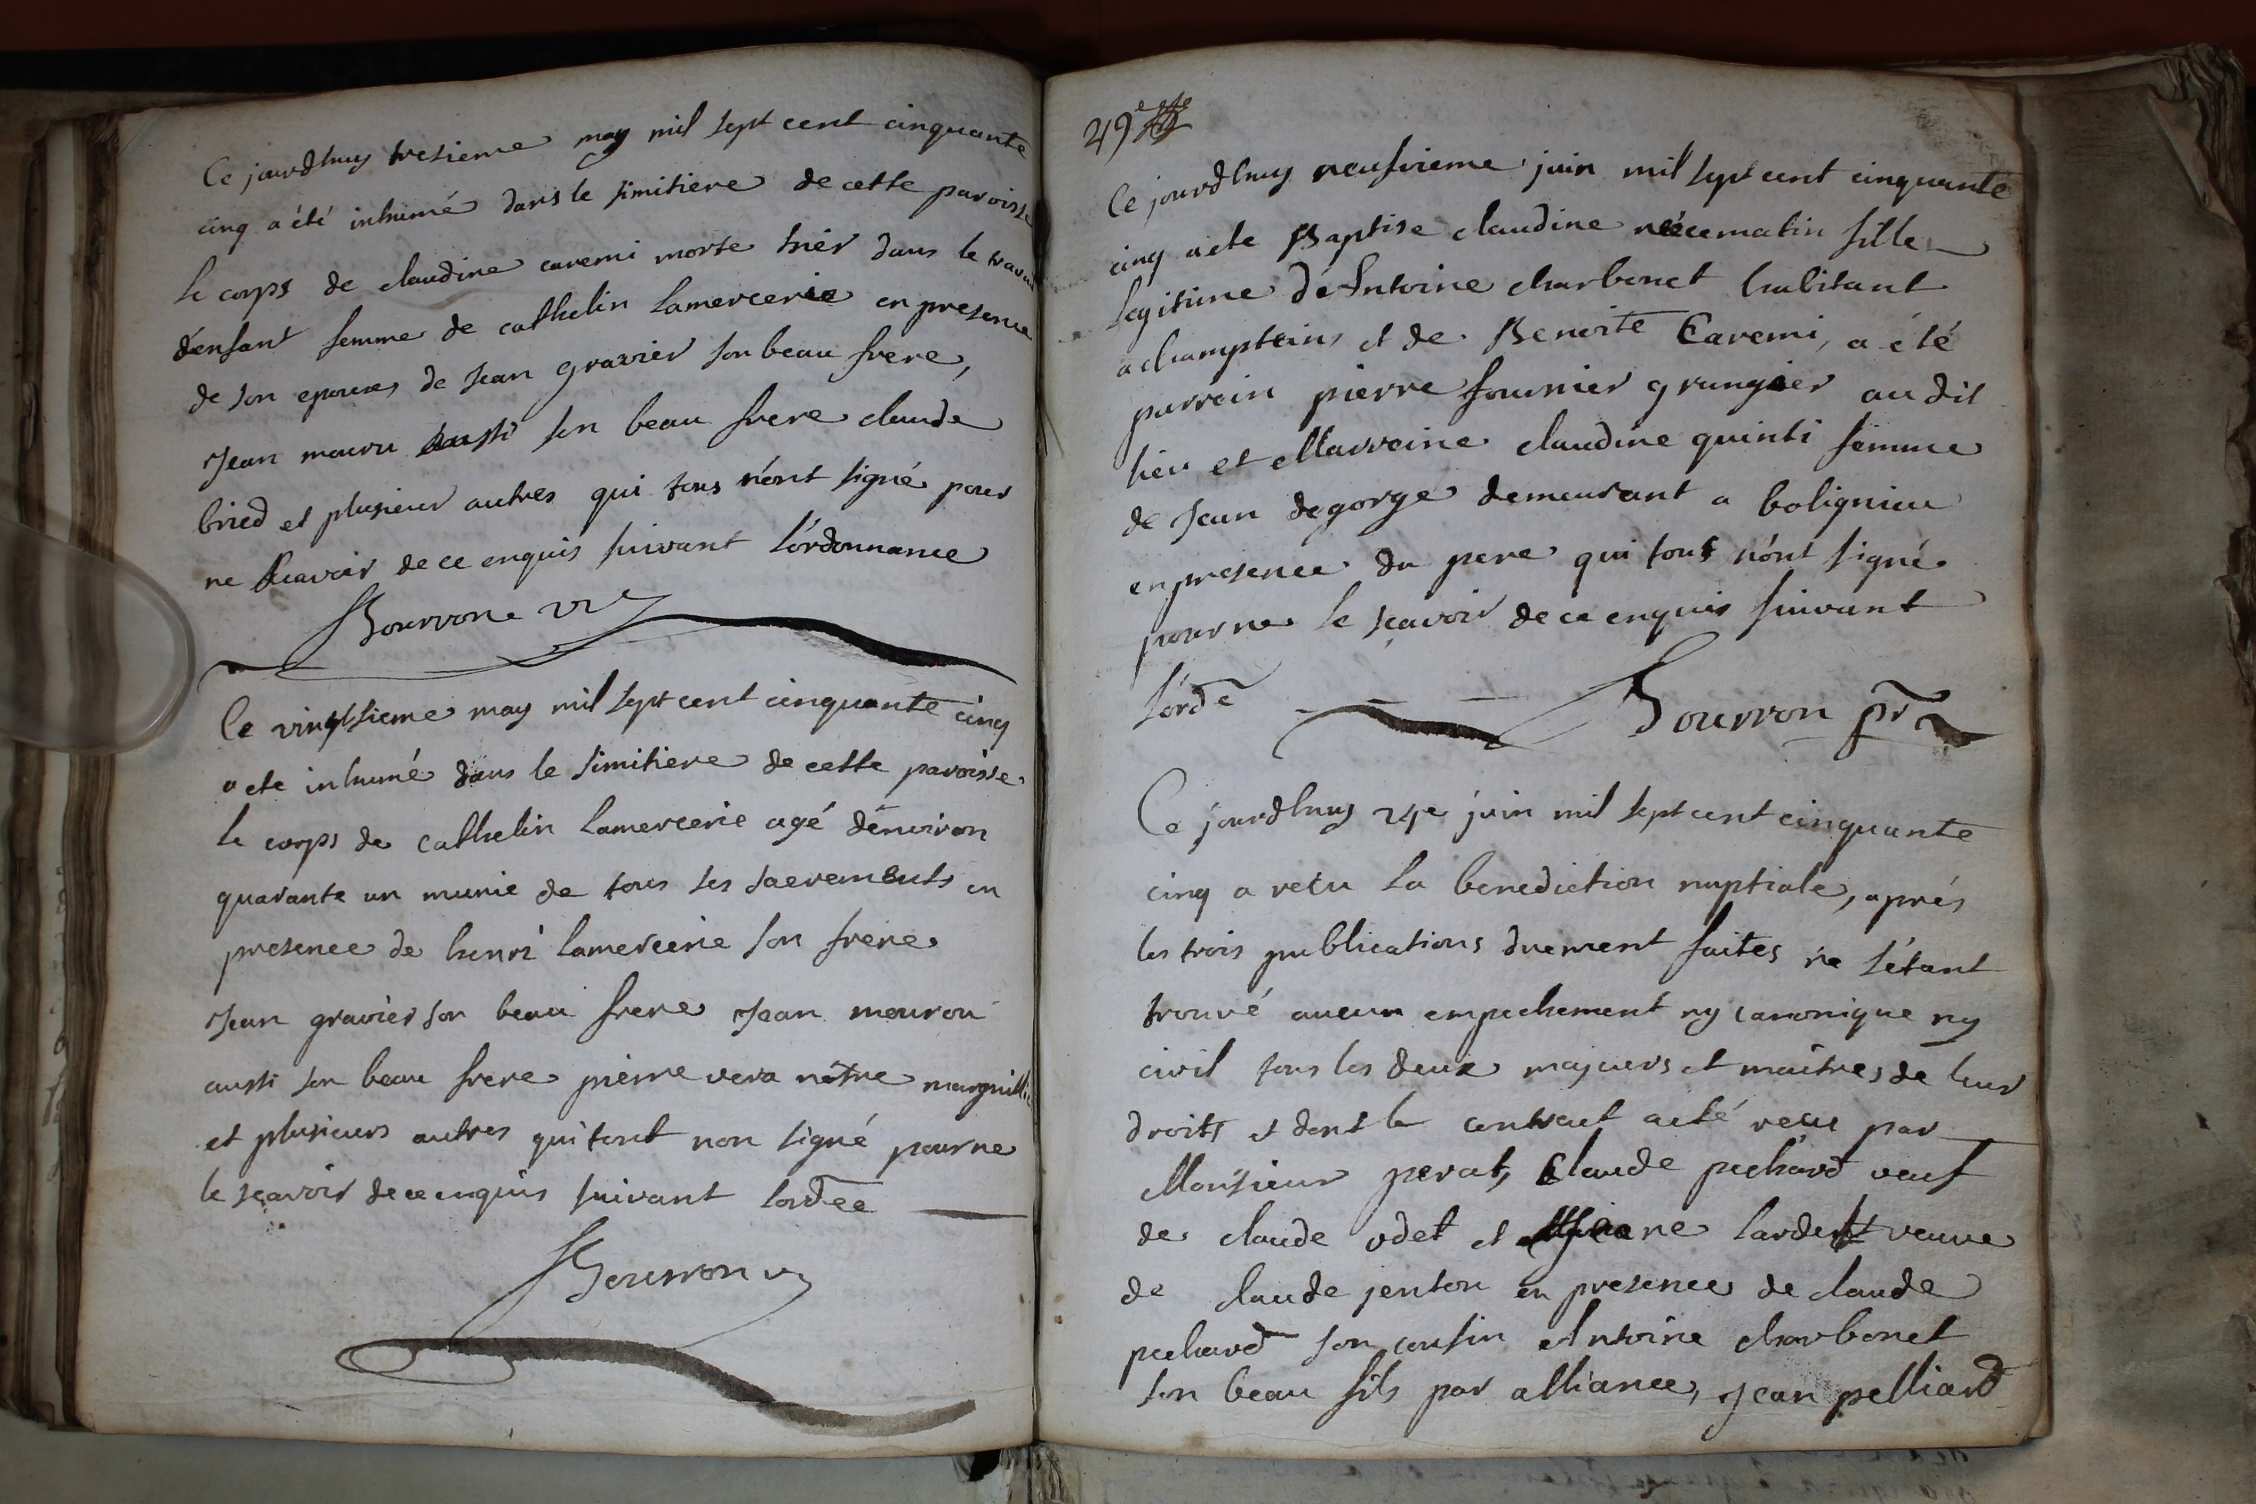 Ce jourdhuy tresieme may mil sept cent cinquante
cinq a été inhumé dans le simitiere de cette paroisse
le corps de claudine caremi morte hier dans le travail
d'enfant femme de cathelin lamercerie en presence
de son epoux de Jean gravier son beau frere,
Jean mouru aussi son beau frere claude
bried et plusieur autres qui tous n'ont signé pour
ne scavoir de ce enquis suivant l'ordonnance
Bourron vic
Ce vingtsieme may mil sept cent cinquante cinq
a ete inhumé dans le simitiere de cette paroisse
le corps de cathelin lamercerie agé d'environ
quarante un munie de tous les sacrements en
presence de henri lamercerie son frere
Jean gravier son beau frere Jean mourou
aussi son beau frere pierre vera nôtre marguillier
et plusieurs autres qui tout non signé pour ne
le sçavoir de ce enquis suivant lordce
Bourron v
29e
Ce jourdhuy neufvieme juin mil sept cent cinquante
cinq a ete Baptise claudine née ce matin fille
legitime d'Antoine charbonet habitant
a champtein et de Benoite Caremi, a été
parrein pierre fournier grangier au dit
lieu et Marreine claudine quinti femme
de Jean degorge demeurant a bolignieu
en presence du pere qui tous n'ont signé
pour ne le sçavoir de ce enquis suivant
l'orde
Bourron pr
Ce jourdhuy 24e juin mil sept cent cinquante
cinq a reçu la benediction nuptiale, aprés
les trois publications duement faites ne s'étant
trouvé aucun empechement ny canonique ny
civil tous les deux majeurs et maitres de leur
droits et dont le contract a eté reçu par
Monsieur perat, Claude pechard veuf
de claude odet et Jeane lardet veuve
de claude jenton en presence de claude
pechard son cousin Antoine charbonet
son beau fils par alliance, Jean pelliard